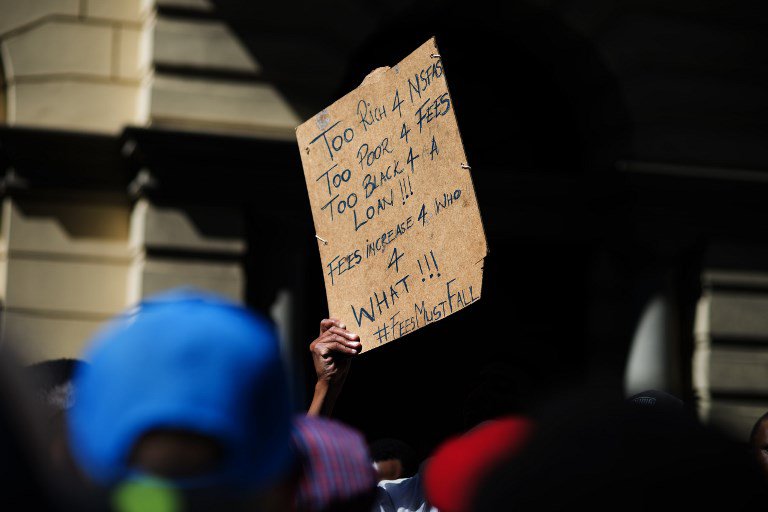 Too Rich 4 NSFAS
Too Poor 4 Fees
Too Black 4 A
Loan !!!
Fees increase 4 who
4
What !!!
#FeesMustFall